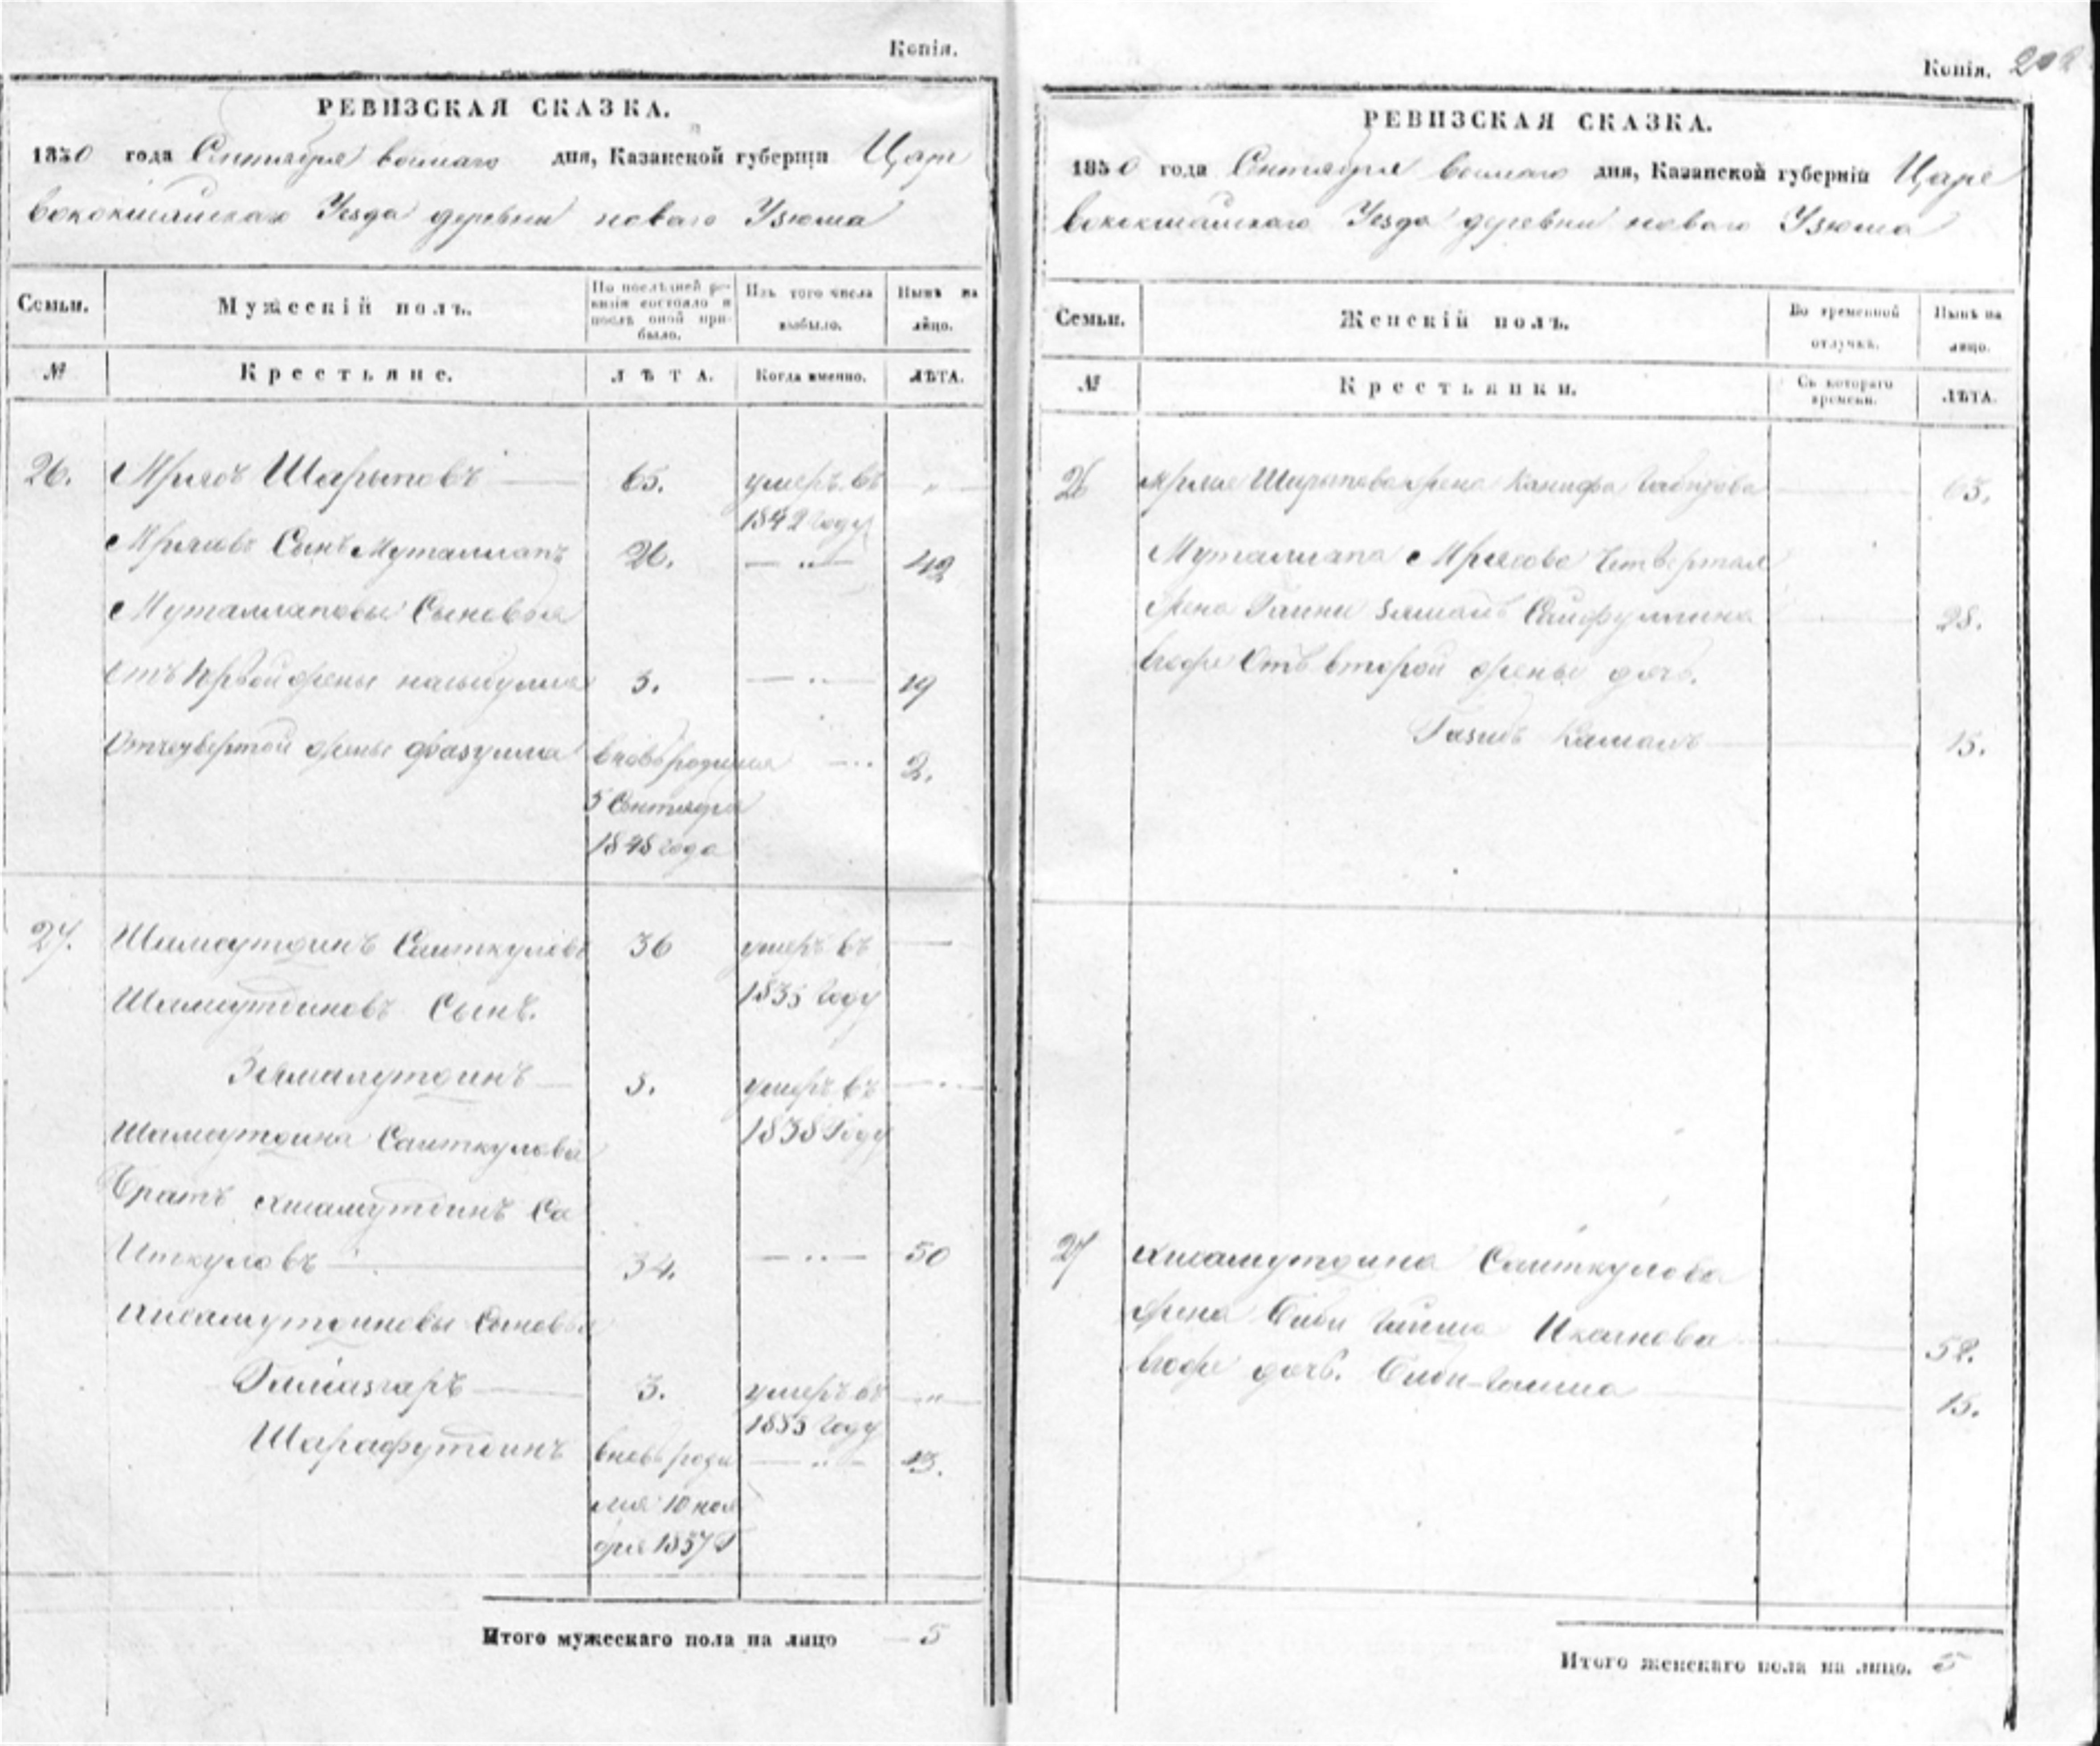 Копія.
РЕВИЗСКАЯ СКАЗКА.
1850 года Сентября восмаго дня, Казанской губерніи Царе
вококшайскаго Уезда деревни новаго Узюма
Семьи.
Мужескій полъ.
По послѣдней ре-
визіи состояло и
послѣ оной при-
было.
Изъ того числа
выбыло.
Нынѣ на
лицо.
№
Крестьяне.
ЛѢТА.
Когда именно.
ЛѢТА.
26. Шарыповъ 65. умеръ въ „
1842 году
Сынъ Муталлапъ 26. — „ — 42
Муталлаповы Сыновья
Отъ первой жены 3. — „ — 19
Отъ четвертой жены Фазулла вновь родился 2.
5 Сентября
1848 года
27. Шамсутдинъ Саиткуловъ 36 умеръ въ —
1835 году
Шамсутдиновъ Сынъ.
5. умеръ въ —
1838 Году
Шамсутдина Саиткулова
Братъ Хисамутдинъ Са
Иткуловъ 34. — „ — 50
Хисамутдиновы Сыновья
3. умеръ въ „
1835 году
Шарафутдинъ вновь роди — „ — 13.
лся 10 ноя
бря 1837 Г
Итого мужескаго пола на лицо 5
Копія. 202
РЕВИЗСКАЯ СКАЗКА.
1850 года Сентября восмаго дня, Казанской губерніи Царе
вококшайскаго Уезда деревни новаго Узюма
Семьи.
Женскій полъ.
Во временной
отлучкѣ.
Нынѣ на
лицо.
№
Крестьянки.
Съ котораго
времени.
ЛѢТА.
26 Шарыпова жена Ханифа 63.
Муталлапа четвертая
жена Сайфуллина 28.
Егоже Отъ второй жены дочь.
Камалъ 15.
27 Хисамутдина Саиткулова
жена Биби 52.
Егоже дочь. Биби 15.
Итого женскаго пола на лицо. 5